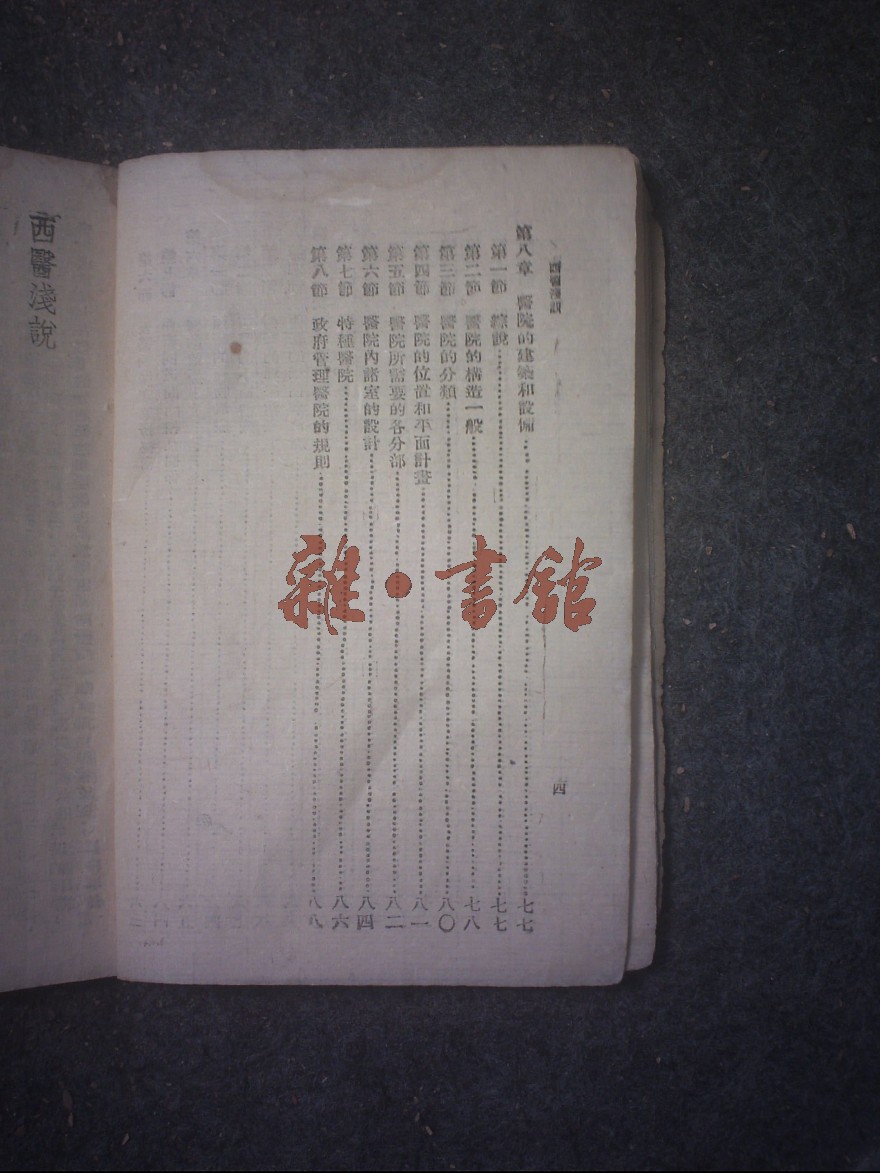 西醫淺說
四
第八章 醫院的建築和設備………七七
第一節 綜說………七七
第二節 醫院的構造一般………七八
第三節 醫院的分類………八〇
第四節 醫院的位置和平面計畫………八一
第五節 醫院所需要的各分部………八二
第六節 醫院內諸室的設計………八四
第七節 特種醫院………八六
第八節 政府管理醫院的規則………八八
西醫淺說
雜·書館